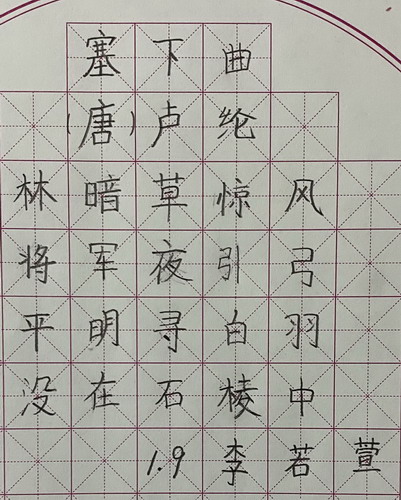 塞下曲
(唐)卢纶
林暗草惊风
将军夜引弓
平明寻白羽
没在石棱中
1.9 李若萱